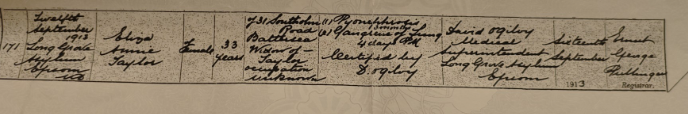 171
Twelfth
September
1913
Long Grove
Asylum
Epsom
UD
Eliza
Annie
Taylor
Female
33
years
of 31 Southolm
Road
Battersea
Widow of —
Taylor
occupation
unknown
(1) Pyonephrosis
(2) Gangrene of Lung
4 days P.M.
Certified by
D. Ogilvy
David Ogilvy
Medical
Superintendent
Long Grove Asylum
Epsom
Sixteenth
September
1913
Ernest
George
Registrar.